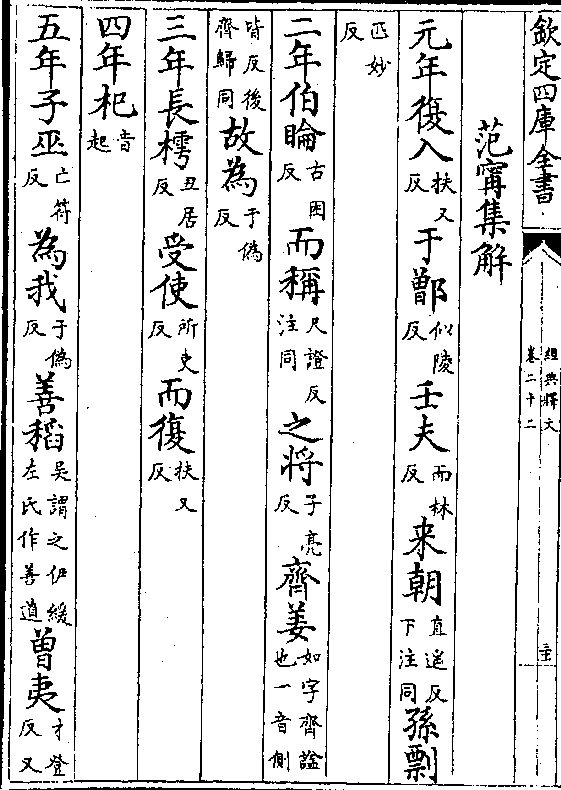 欽定四庫全書
經典釋文
卷二十二
范甯集解
元年復入扶又反于鄫似陵反壬夫而林反来朝直遥反下注同孫剽
匹妙反
二年伯睔古困反而稱尺證反注同之将子亮反齊姜如字齊諡也一音側
皆反後齊歸同故為于偽反
三年長樗丑居反受使所吏反而復扶又反
四年杞音起
五年子巫亡符反為我于偽反善稻吳謂之伊緩左氏作善道曽夷才登反又